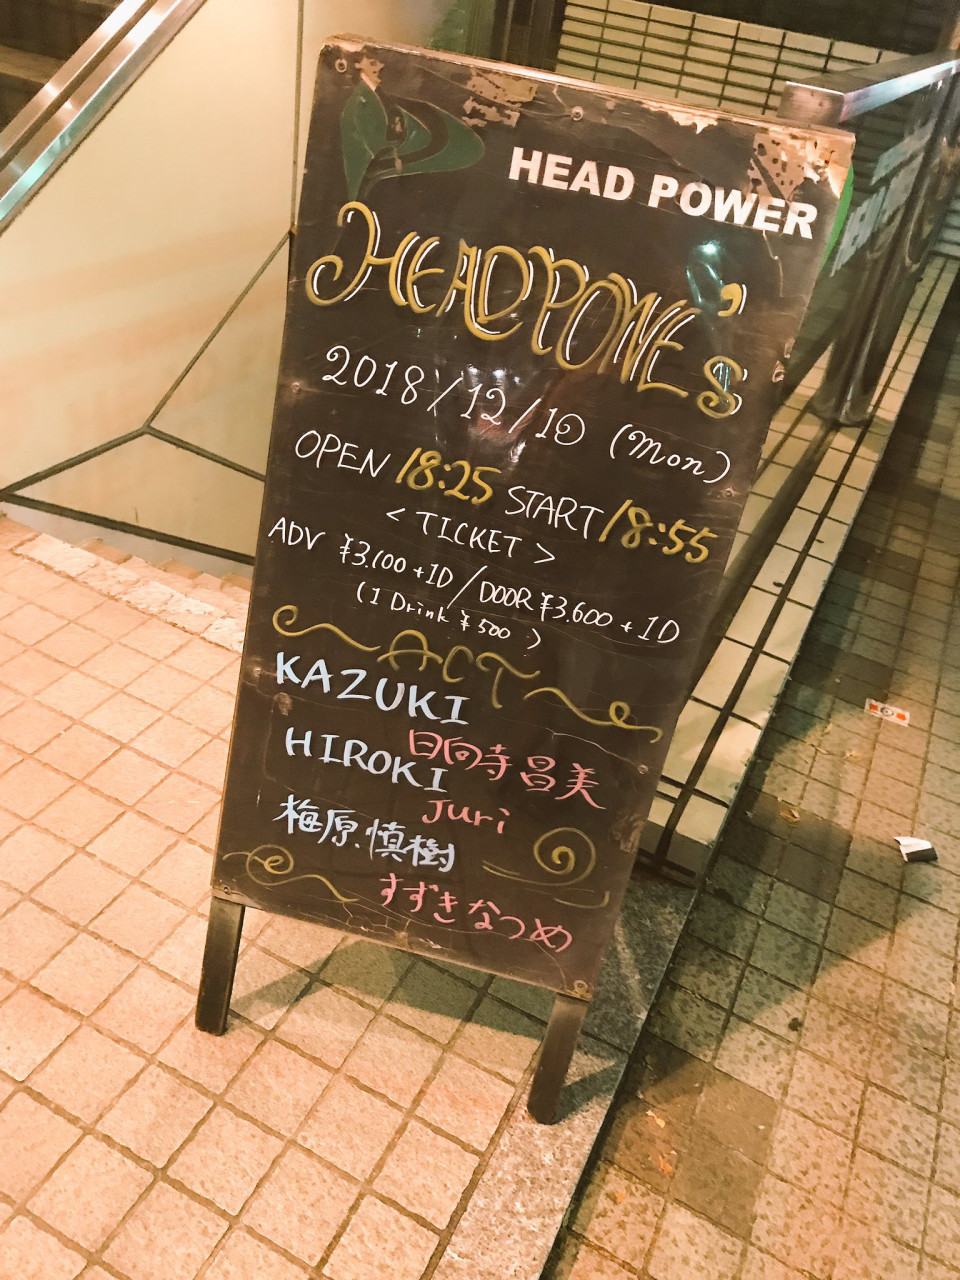 HEAD POWER
HEADPOWE's
2018/12/10 (Mon)
OPEN 18:25 START 18:55
<TICKET>
ADV ¥3.100+1D/DOOR ¥3.600+1D
(1 Drink ¥500)
ACT
KAZUKI
日向寺昌美
HIROKI
Juri
梅原慎樹
すずきなつめ